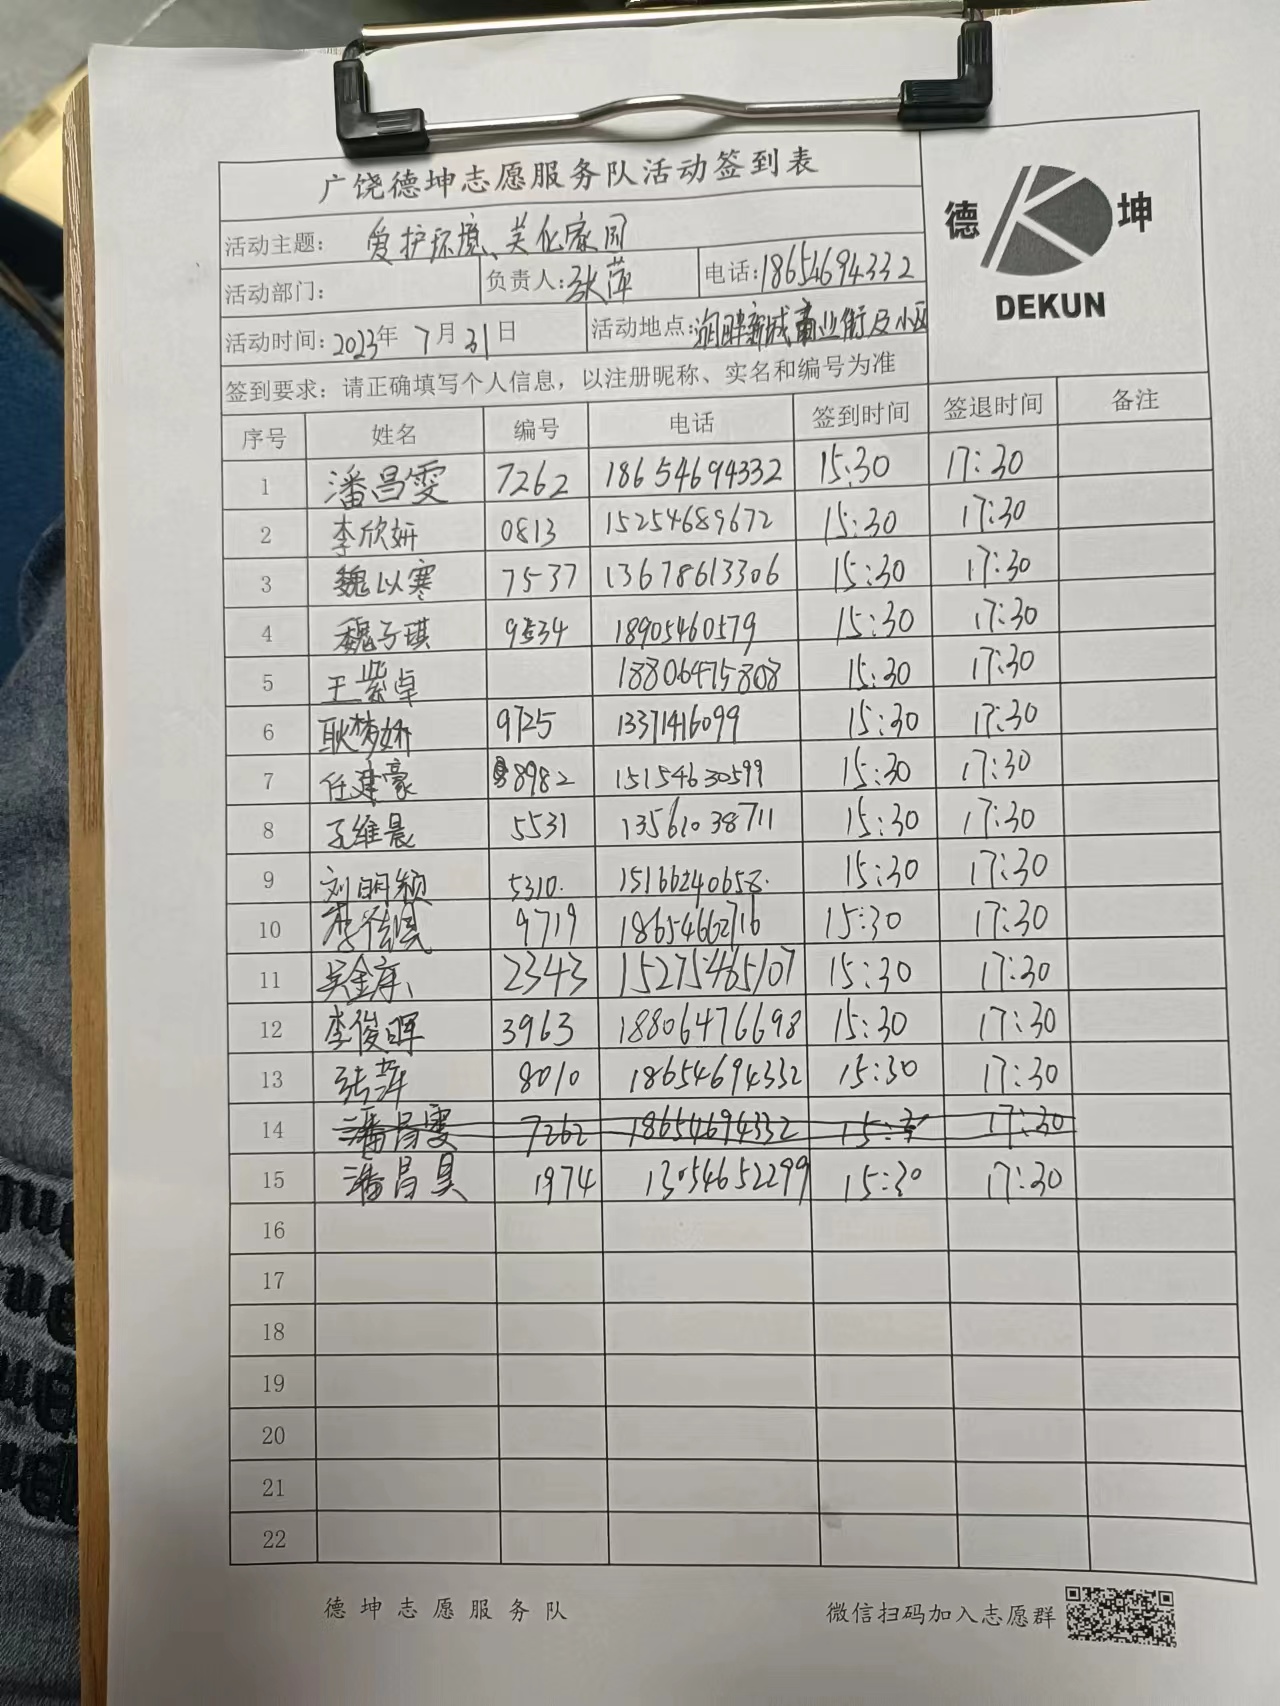 广饶德坤志愿服务队活动签到表
德 坤
DEKUN
活动主题: 爱护环境、美化家园
活动部门: 负责人:张萍 电话:18654694332
活动时间:2023年 7月31日 活动地点:润晖新城商业街及小区
签到要求:请正确填写个人信息,以注册昵称、实名和编号为准
序号 姓名 编号 电话 签到时间 签退时间 备注
1 潘昌雯 7262 18654694332 15:30 17:30
2 李欣妍 0813 15254689672 15:30 17:30
3 魏以寒 7537 13678613306 15:30 17:30
4 魏子琪 9534 18905460579 15:30 17:30
5 王紫卓 18806475808 15:30 17:30
6 耿梦妍 9725 13371416099 15:30 17:30
7 任建豪 8982 15154630599 15:30 17:30
8 孔维晨 5531 13561038711 15:30 17:30
9 刘明颖 5310. 15166240658. 15:30 17:30
10 李 9719 18654662716 15:30 17:30
11 吴金 2343 15275465107 15:30 17:30
12 李俊晖 3963 18806476698 15:30 17:30
13 张萍 8010 18654694332 15:30 17:30
14 潘昌雯 7262 18654694332 15:3 17:30
15 潘昌昊 1974 13054652299 15:30 17:30
16
17
18
19
20
21
22
德坤志愿服务队 微信扫码加入志愿群